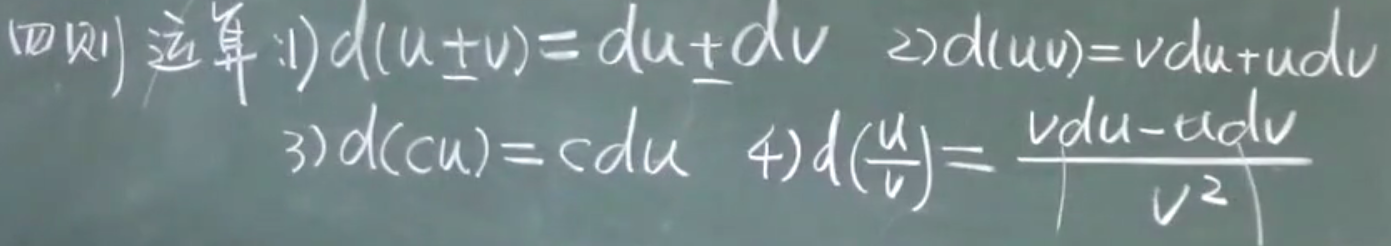 (四则)运算:1) d(u±v)=du±dv 2) d(uv)=vdu+udv
3) d(cu)=cdu 4) d(u/v)=(vdu-udv)/v²